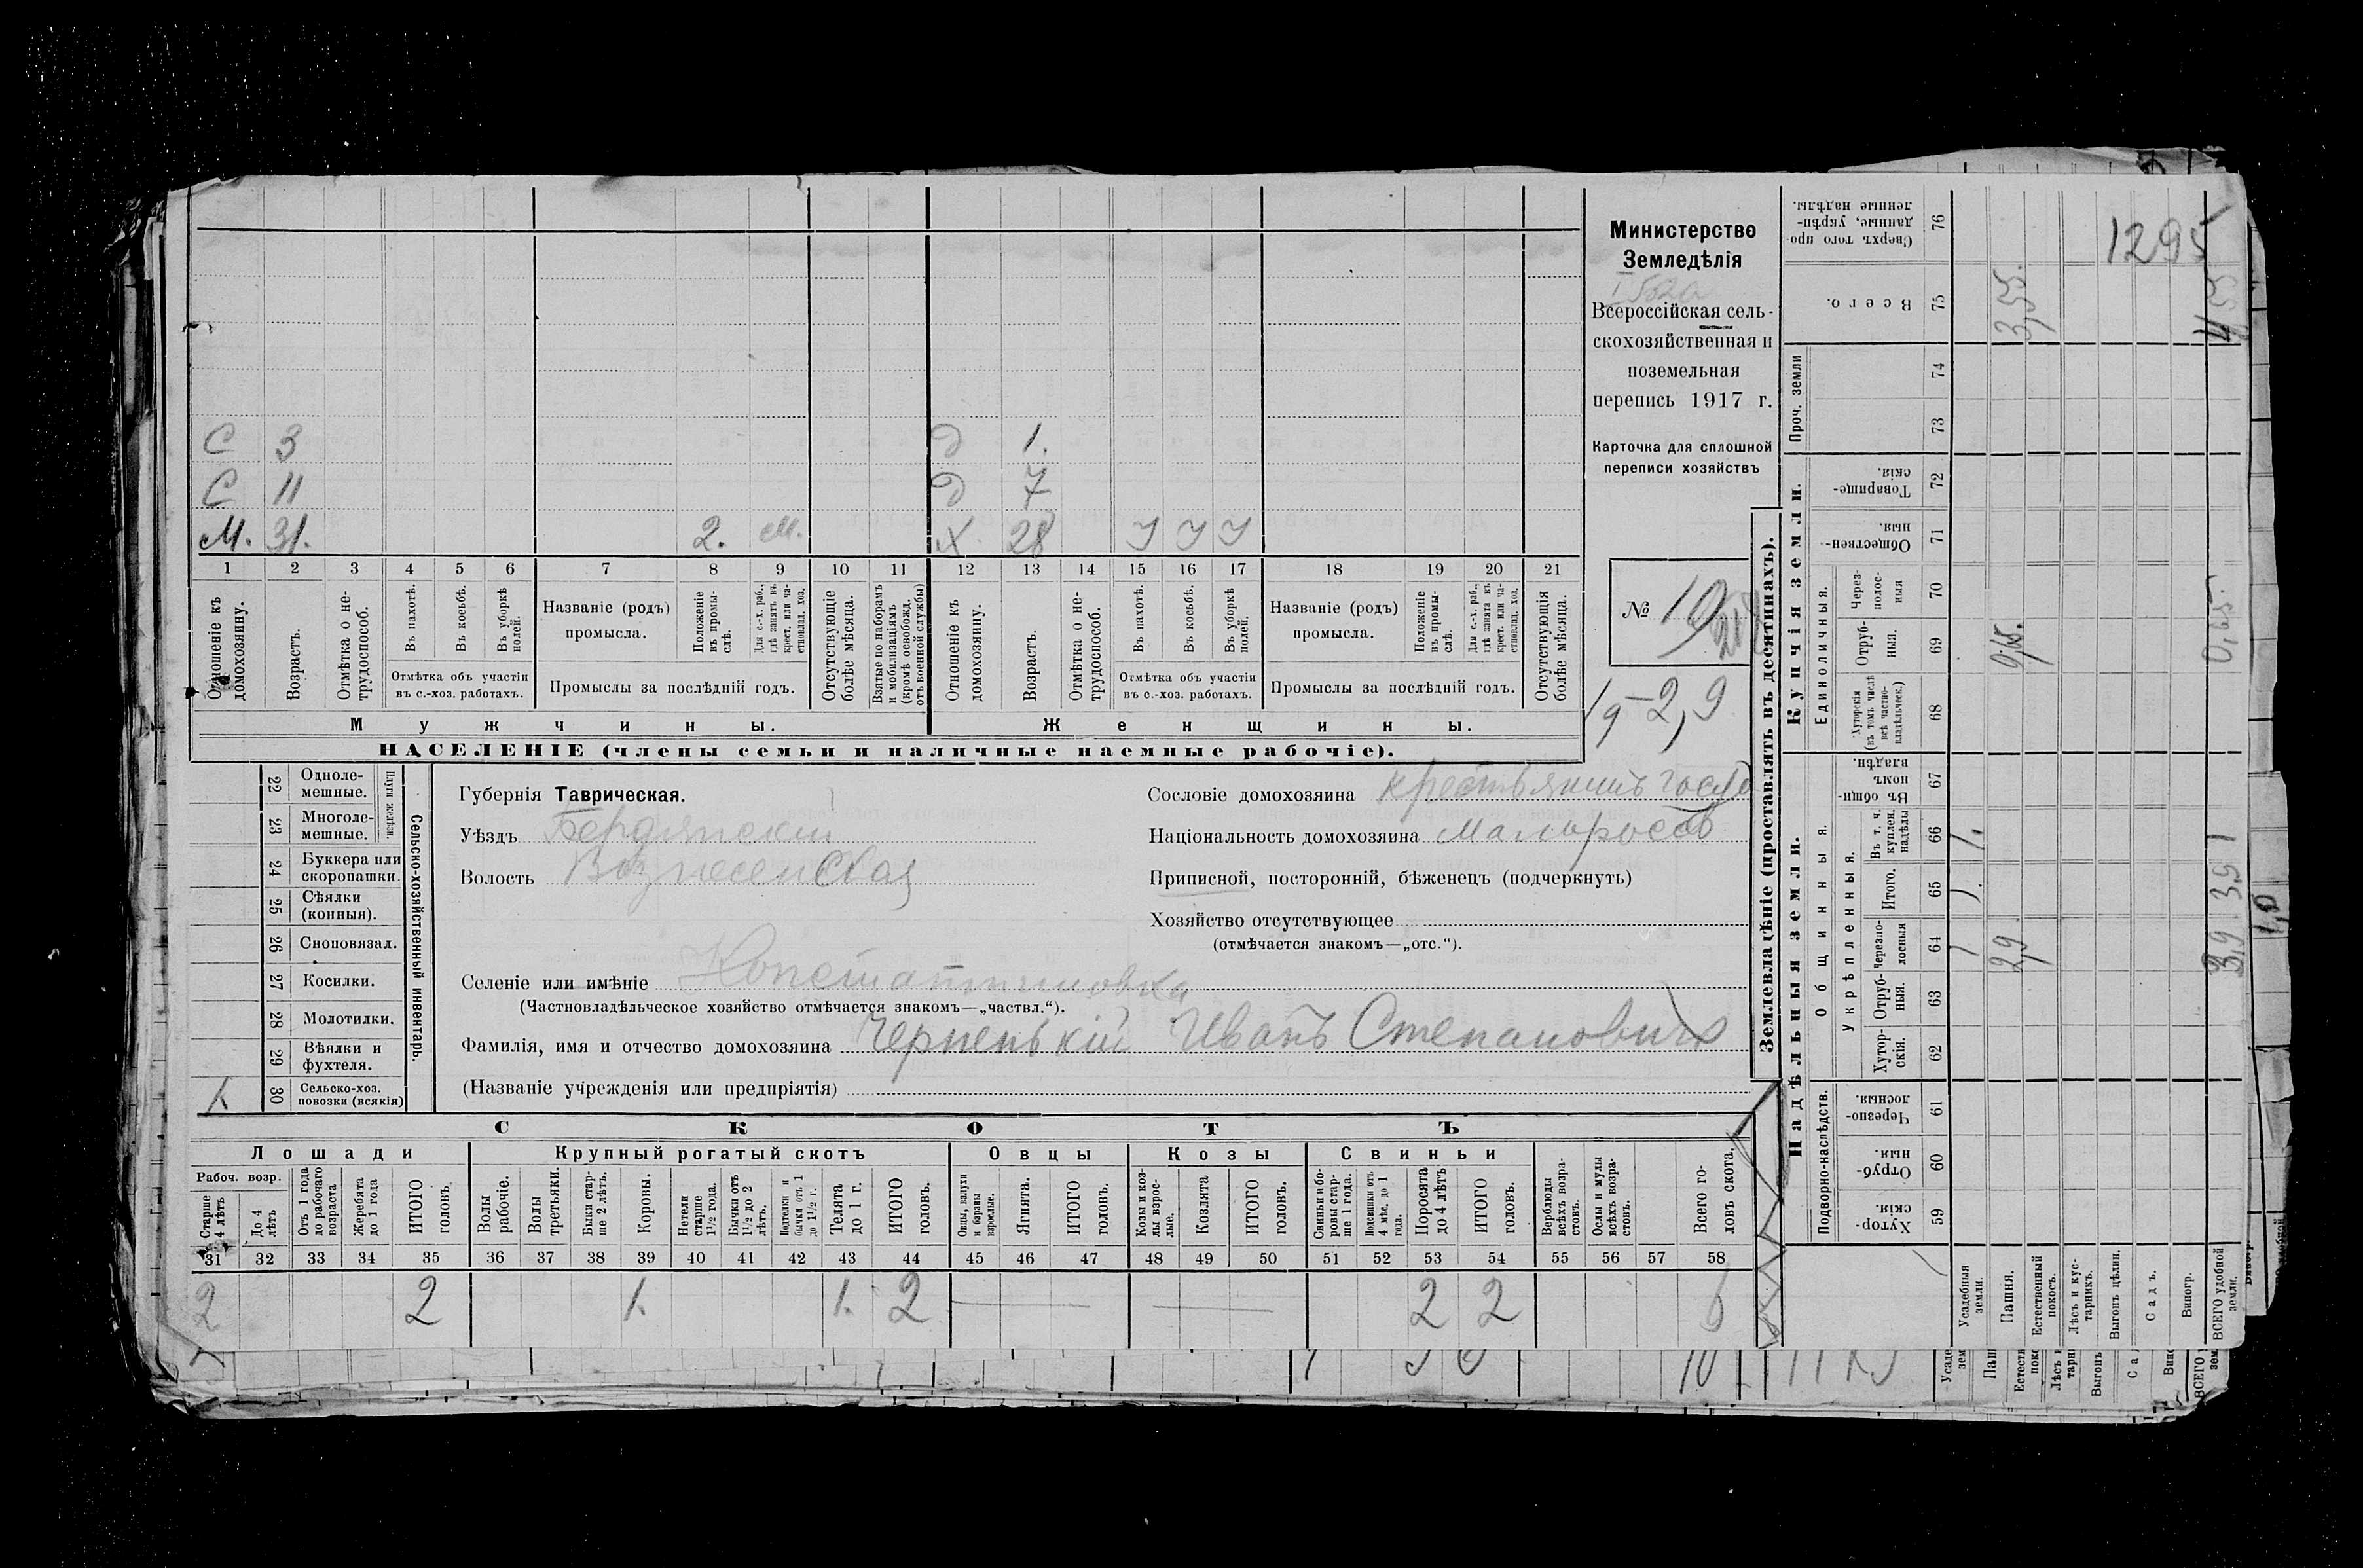 Министерство
Земледѣлія
Всероссійская сель-
скохозяйственная и
поземельная
перепись 1917 г.
Карточка для сплошной
переписи хозяйствъ
№ 19
19-2,9
С 3 Д 1.
С 11 Д 7
М. 31. 2. М. Х 28 У У У
1 2 3 4 5 6 7 8 9 10 11 12 13 14 15 16 17 18 19 20 21
Отношеніе къ домохозяину.
Возрастъ.
Отмѣтка о не-трудоспособ.
Въ пахотѣ.
Въ косьбѣ.
Въ уборкѣ полей.
Отмѣтка объ участіи
въ с.-хоз. работахъ.
Названіе (родъ)
промысла.
Положеніе въ промы-слѣ.
Для с.-х. раб., гдѣ занятъ въ крест. или ча-стновлад. хоз.
Промыслы за послѣдній годъ.
Отсутствующіе болѣе мѣсяца.
Взятые по наборамъ и мобилизаціямъ (кромѣ освобожд. отъ военной службы)
Отношеніе къ домохозяину.
Возрастъ.
Отмѣтка о не-трудоспособ.
Въ пахотѣ.
Въ косьбѣ.
Въ уборкѣ полей.
Отмѣтка объ участіи
въ с.-хоз. работахъ.
Названіе (родъ)
промысла.
Положеніе въ промы-слѣ.
Для с.-х. раб., гдѣ занята въ крест. или ча-стновлад. хоз.
Промыслы за послѣдній годъ.
Отсутствующія болѣе мѣсяца.
Мужчины. Женщины.
НАСЕЛЕНІЕ (члены семьи и наличные наемные рабочіе).
22 Одноле-мешные.
23 Многоле-мешные.
Плуги желѣзн.
24 Буккера или скоропашки.
25 Сѣялки (конныя).
26 Сноповязал.
27 Косилки.
28 Молотилки.
29 Вѣялки и фухтеля.
30 Сельско-хоз. повозки (всякія)
Сельско-хозяйственный инвентарь.
Губернія Таврическая.
Уѣздъ Бердянскій
Волость Вознесенская
Сословіе домохозяина крестьянинъ госуд
Національность домохозяина малоросъ
Приписной, посторонній, бѣженецъ (подчеркнуть)
Хозяйство отсутствующее
(отмѣчается знакомъ—„отс.“).
Селеніе или имѣніе Константиновка
(Частновладѣльческое хозяйство отмѣчается знакомъ—„частвл.“).
Фамилія, имя и отчество домохозяина Черненькій Иванъ Степановичъ
(Названіе учрежденія или предпріятія)
СКОТЪ
Лошади Крупный рогатый скотъ Овцы Козы Свиньи
Рабоч. возр.
Старше 4 лѣтъ
До 4 лѣтъ
Отъ 1 года до рабочаго возраста
Жеребята до 1 года
ИТОГО головъ
Волы рабочіе.
Волы третьяки.
Быки стар-ше 2 лѣтъ.
Коровы.
Нетели старше 1½ года.
Бычки отъ 1½ до 2 лѣтъ.
Подтелки и бычки отъ 1 до 1½ г.
Телята до 1 г.
ИТОГО головъ.
Овцы, валухи и бараны взрослые.
Ягнята.
ИТОГО головъ.
Козы и коз-лы взрос-лые.
Козлята
ИТОГО головъ.
Свиньи и бо-ровы стар-ше 1 года.
Подсвинки отъ 4 мѣс. до 1 года.
Поросята до 4 лѣтъ
ИТОГО головъ.
Верблюды всѣхъ возра-стовъ.
Ослы и мулы всѣхъ возра-стовъ.
Всего го-ловъ скота.
31 32 33 34 35 36 37 38 39 40 41 42 43 44 45 46 47 48 49 50 51 52 53 54 55 56 57 58
2 2 1. 1. 2 2 2 6
Землевладѣніе (проставлять въ десятинахъ).
Надѣльныя земли. Купчія земли. Проч. земли
Подворно-наслѣдств. Общинныя. Единоличныя.
Укрѣпленныя.
Хутор-скія. 59
Отруб-ныя. 60
Черезпо-лосныя. 61
Хутор-скія. 62
Отруб-ныя. 63
Черезпо-лосныя 64
Итого. 65
Въ т. ч. куплен. надѣлы 66
Въ общи-номъ владѣн. 67
Хуторскія (въ томъ числѣ всѣ частно-владѣльческ.) 68
Отруб-ныя. 69
Через-полос-ныя 70
Обществен-ныя. 71
Товарище-скія. 72
73
74
Всего. 75
Сверхъ того про-данные, укрѣп-ленные надѣлы. 76
Усадебныя земли. 1 1. 1.
Пашня. 2,9 0,65. 3,55.
Естественный покосъ.
Лѣсъ и кус-тарникъ.
Выгонъ цѣлин.
Садъ.
Виногр.
ВСЕГО удобной земли. 3,9 3,9 1 0,65. 4,55
1295